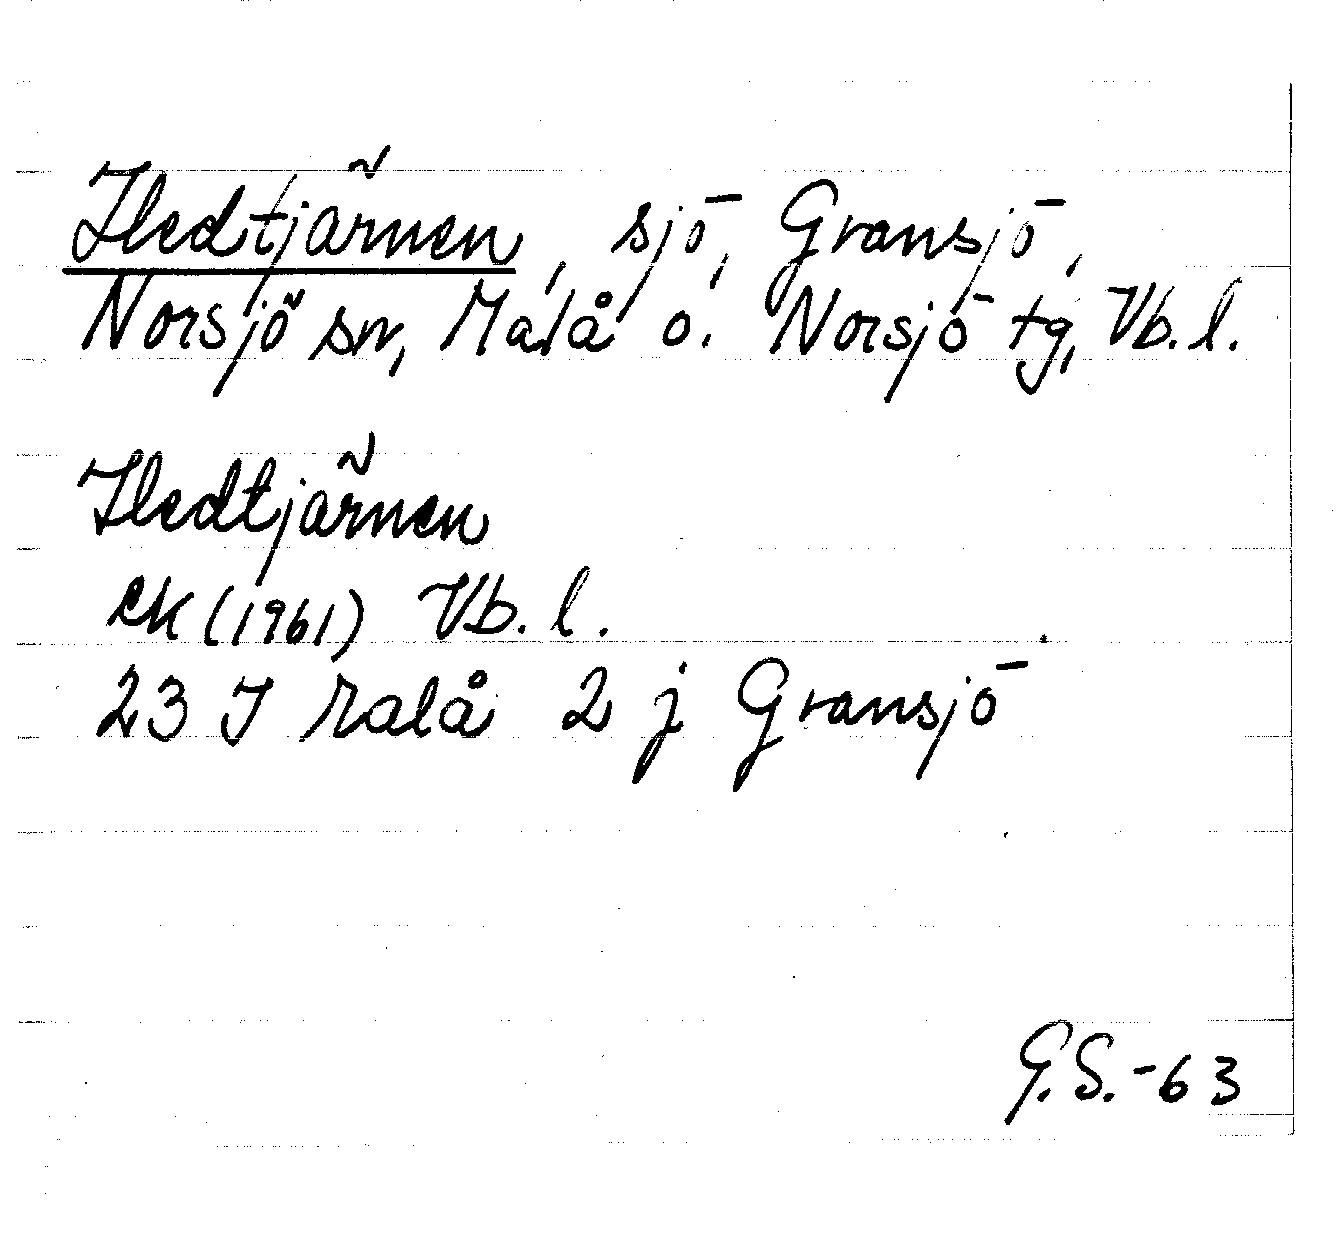 Iledtjärnen, sjö, Gransjö,
Norsjö sn, Malå o. Norsjö tg, Vb. l.
Iledtjärnen
ek (1961) Vb. l.
23 I Malå 2 j Gransjö
G.S.-63